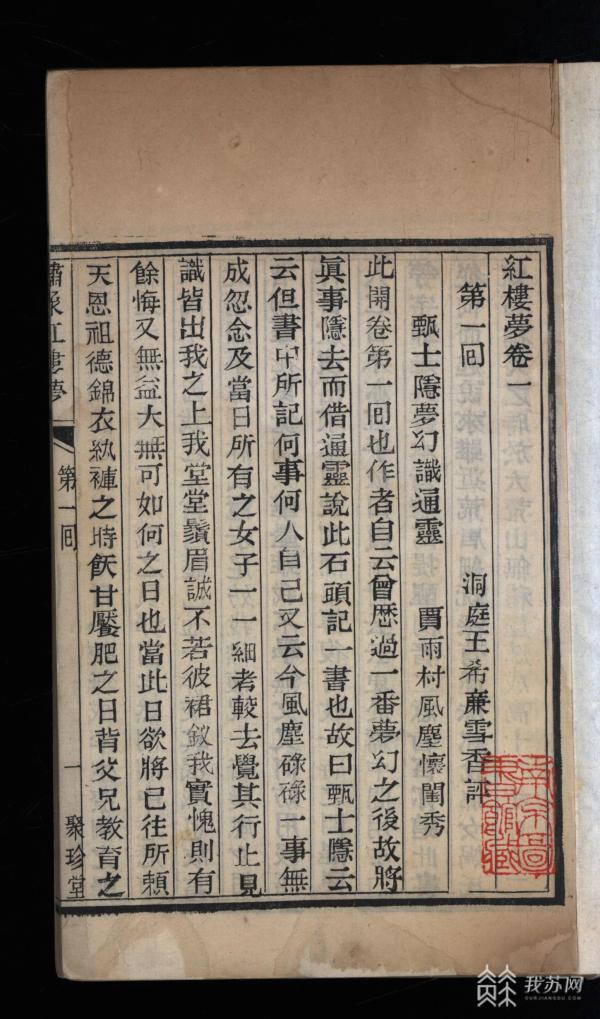 紅樓夢卷一
第一回 洞庭王希廉雪香評
甄士隱夢幻識通靈 賈雨村風塵懷閨秀
此開卷第一回也作者自云曾歷過一番夢幻之後故將
眞事隱去而借通靈說此石頭記一書也故曰甄士隱云
云但書中所記何事何人自己又云今風塵碌碌一事無
成忽念及當日所有之女子一一細考較去覺其行止見
識皆出我之上我堂堂鬚眉誠不若彼裙釵我實愧則有
餘悔又無益大無可如何之日也當此日欲將已往所賴
天恩祖德錦衣紈褲之時飫甘饜肥之日背父兄教育之
繡像紅樓夢 第一回 一 聚珍堂
我苏网
OURJIANGSU.COM